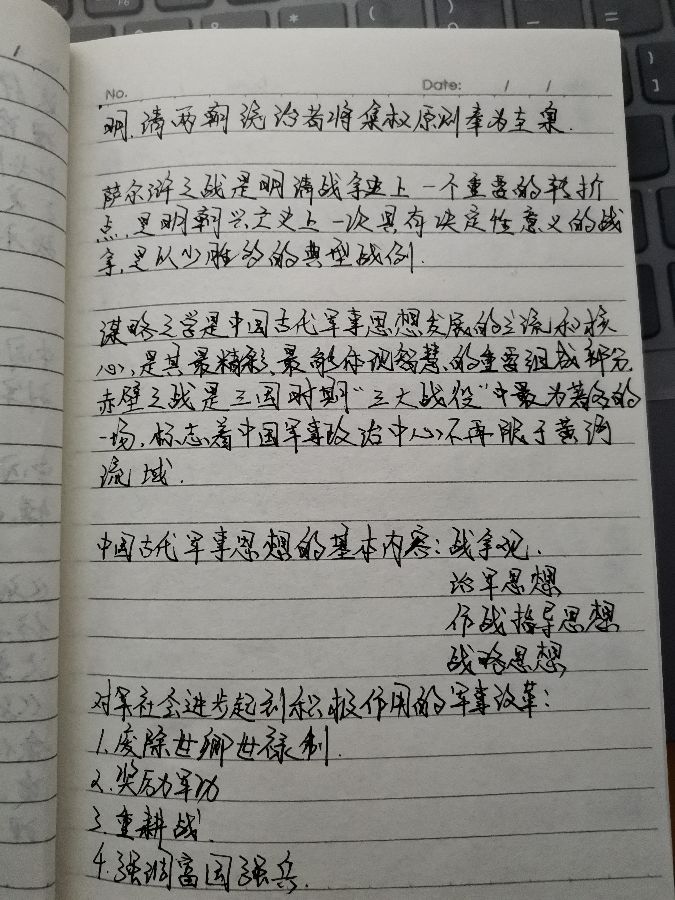 No.
Date: / /
明、清两朝统治者将集权原则奉为圭臬.
萨尔浒之战是明清战争史上一个重要的转折
点,是明朝兴亡史上一次具有决定性意义的战
争,是以少胜多的典型战例.
谋略之学是中国古代军事思想发展的主流和核
心,是其最精彩、最能体现智慧的重要组成部分.
赤壁之战是三国时期“三大战役”中最为著名的
一场,标志着中国军事政治中心不再限于黄河
流域.
中国古代军事思想的基本内容:战争观.
治军思想
作战指导思想
战略思想
对军社会进步起到积极作用的军事改革:
1.废除世卿世禄制.
2.奖励军功
3.重耕战.
4.强调富国强兵.